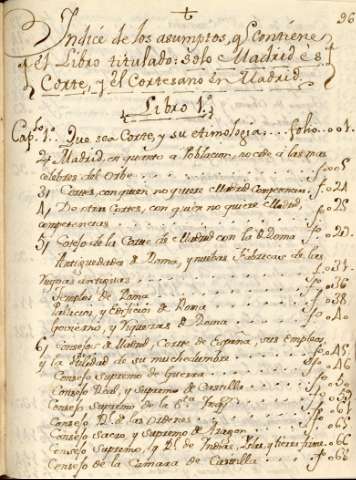 96
Indice de los asumptos, q̃ contiene
el Libro titulado: solo Madrid és
Corte, y el Cortesano en Madrid
Libro 1º
Cap.lo 1º. Que sea Corte, y su etimologia.... folio.. 001.
2/ Madrid, en quanto a Poblacion, no cede á las mas
celebres del Orbe
3/ Cortes, con quien no quiere Madrid Competencia. fo. 024
4/ De otras Cortes, con quien no quiere Madrid,
competencias fo. 025
5/ Cotejo de la Corte de Madrid con la de Roma fo. 027.
Antiguedades de Roma, y nuebas Fabricas de las
antiguas
Templos de Roma fo. 036
Palacios, y Edificios de Roma fo. 038
Govierno, y Riquezas de Roma
6/ Consejos de Madrid, Corte de España, sus Empleos
y la Utilidad de su muchedumbre fo. 045.
Consejo Supremo de Guerra fo. 046
Consejo Real, y Supremo de Castilla
Consejo Supremo de la
Consejo Rl. de las Ordenes
Consejo Sacro, y Supremo de Aragon
Consejo Supremo, y Rl. de Indias, Islas, y tierra firme. 066
Consejo de la Camara de Castilla 066